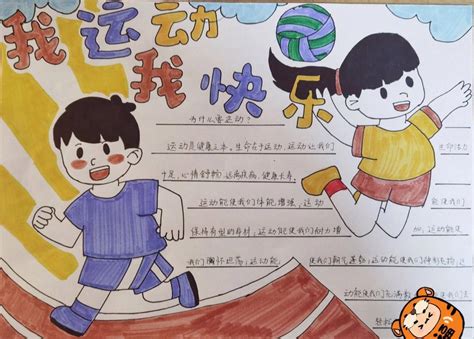 我运动
我快乐
为什么要运动？
运动是健康之本，生命在于运动，运动让我们 生命活力
十足，心情舒畅，远离疾病，健康长寿。
运动能使我们体能增强，运动 能使我们
保持有型的身材，运动能使我们耐力增 加，运动能
我们胸怀坦荡，运动能 使我们朝气蓬勃，运动能使我们
动能使我们充满